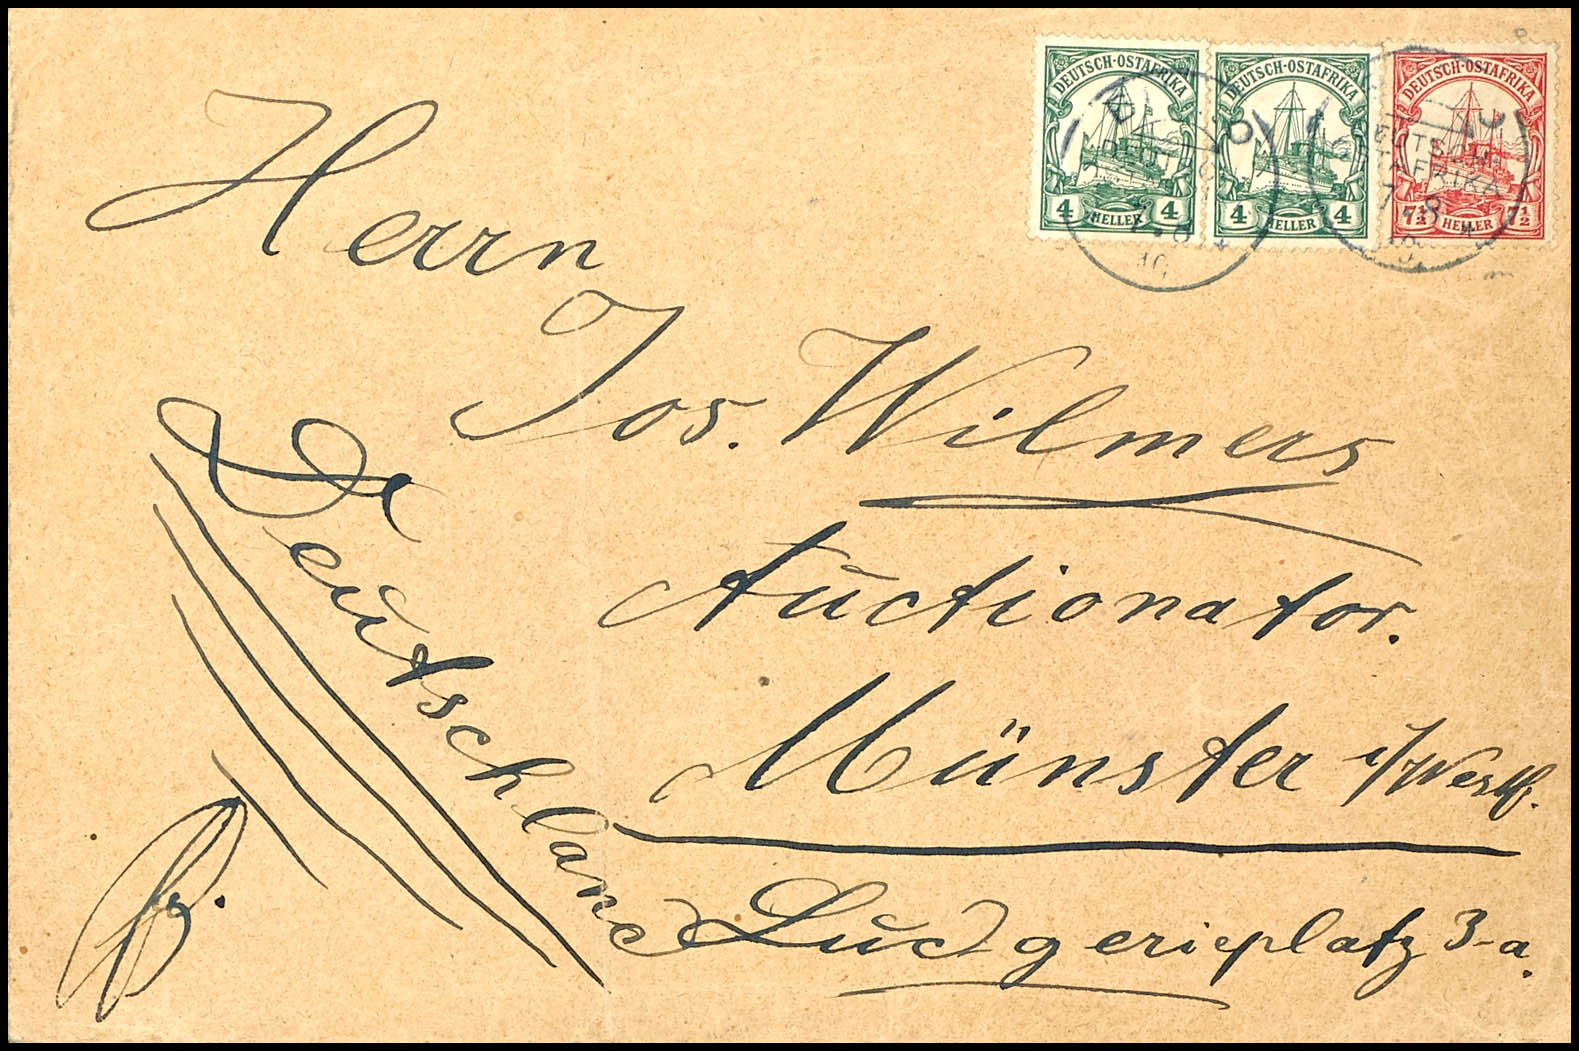 DEUTSCH-OSTAFRIKA
4 HELLER 4
DEUTSCH-OSTAFRIKA
4 HELLER 4
DEUTSCH-OSTAFRIKA
7½ HELLER 7½
DEUTSCH-
OSTAFRIKA
7-8
10.
Herrn
Jos. Wilmers
Auctionator.
Münster i/Westf.
Ludgerieplatz 3-a.
Deutschland